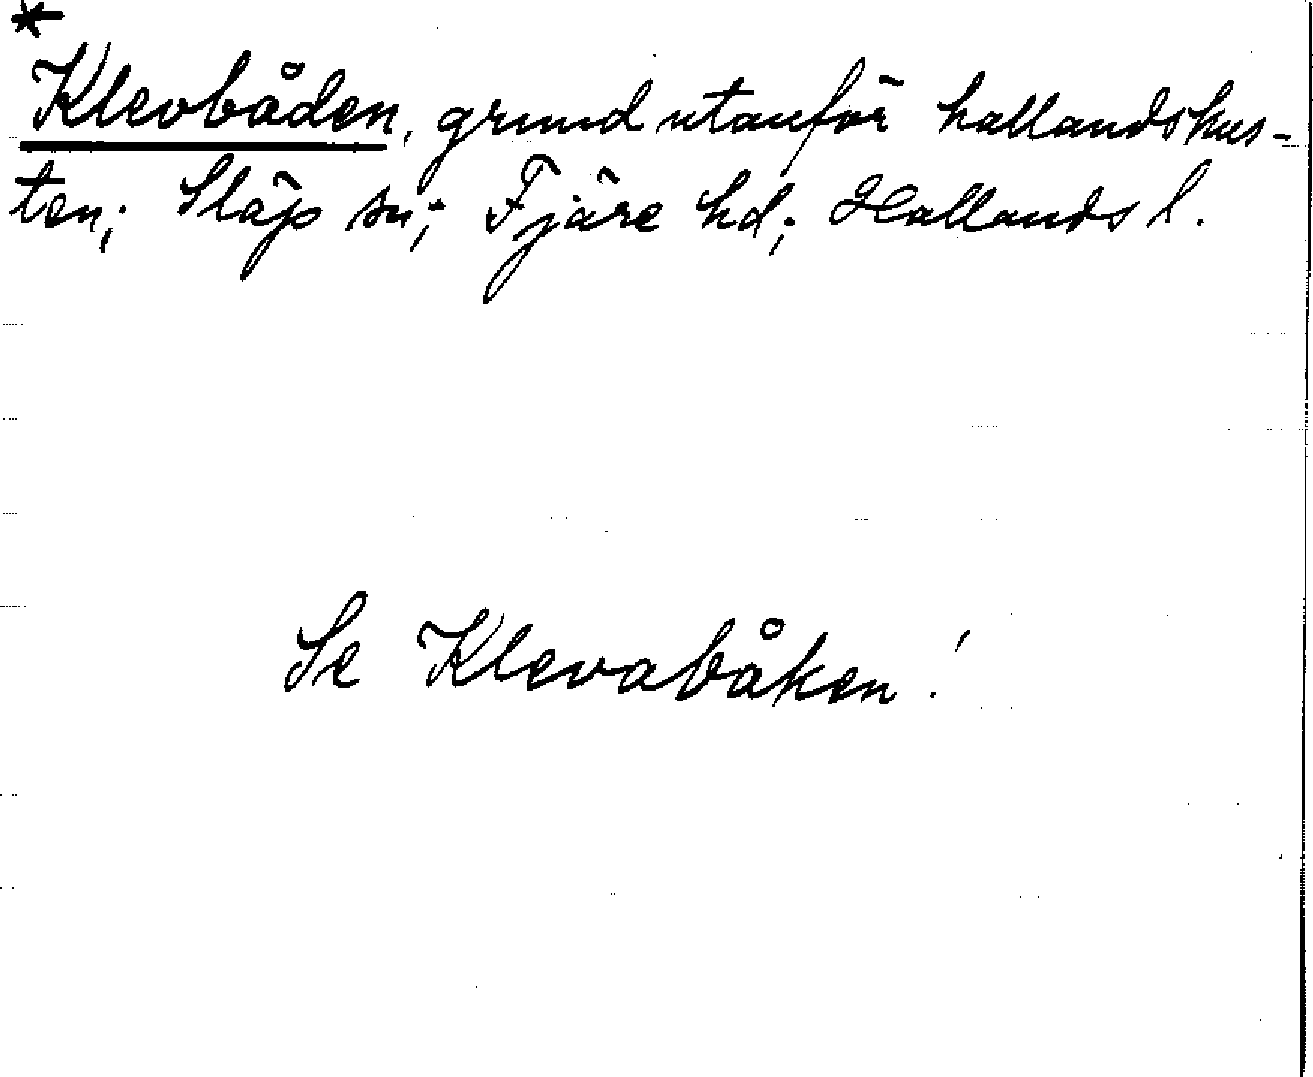 *
Klevbåden, grund utanför hallandskus-
ten; Släp sn; Fjäre hd; Hallands l.
Se Klevabåken!